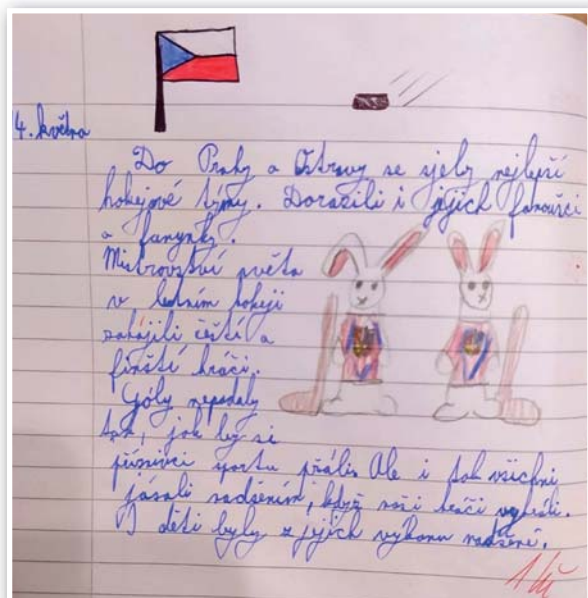 4. května
Do Prahy a Ostravy se sjely nejlepší
hokejové týmy. Dorazili i jejich fanoušci
a fanynky.
Mistrovství světa
v ledním hokeji
zahájili čeští a
finští hráči.
Góly nepadaly
tak, jak by si
příznivci sportu přáli. Ale i tak všichni
jásali nadšením, když naši hráči vyhráli.
I děti byly z jejich výkonu nadšené.